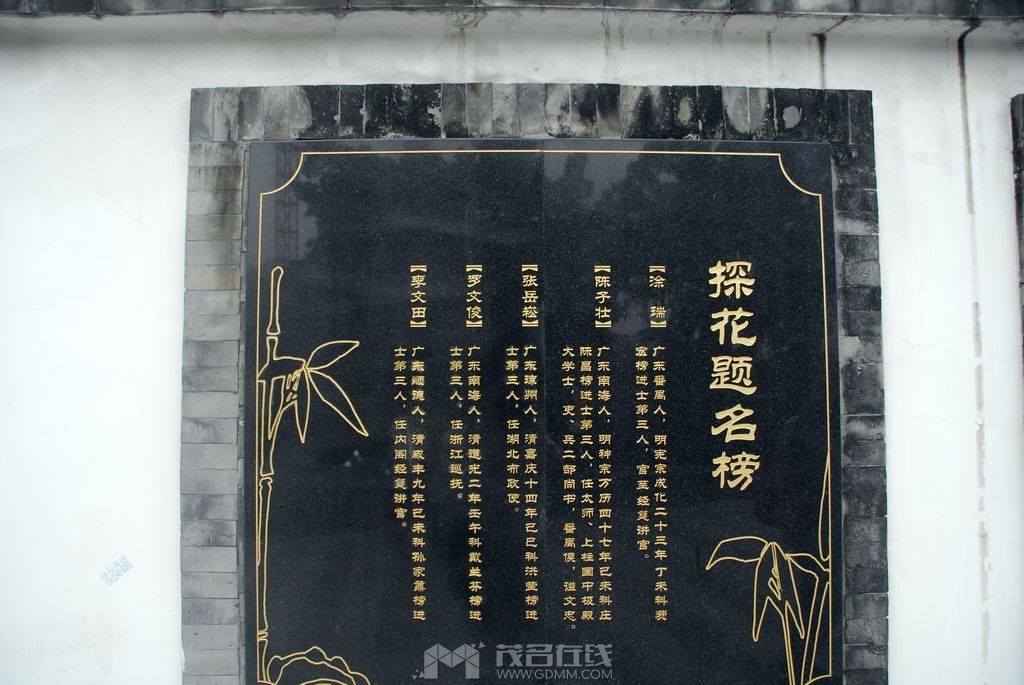 探花题名榜
【涂瑞】
广东番禺人，明宪宗成化二十三年丁未科费
宏榜进士第三人，官至经筵讲官。
【陈子壮】
广东南海人，明神宗万历四十七年己未科庄
际昌榜进士第三人，任太师、上柱国中极殿
大学士，吏、兵二部尚书，番禺侯，谥文忠。
【张岳崧】
广东琼州人，清嘉庆十四年己巳科洪莹榜进
士第三人，任湖北布政使。
【罗文俊】
广东南海人，清道光二年壬午科戴兰芬榜进
士第三人，任浙江巡抚。
【李文田】
广东顺德人，清咸丰九年己未科孙家鼐榜进
士第三人，任内阁经筵讲官。
茂名在线
WWW.GDMM.COM